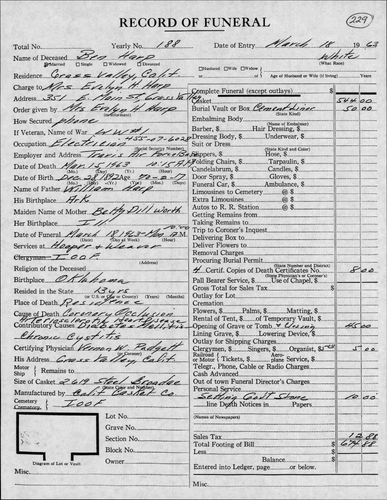 RECORD OF FUNERAL
229
Total No. Yearly No. 188 Date of Entry March 18 1963
Name of Deceased Ben Harp White
Married Single Widowed Divorced Husband Wife Widow (What Race)
Residence Grass Valley, Calif. or Age of Husband or Wife (if living) Years
Charge to Mrs Evelyn H. Harp
Address 351 E. Main St, Grass Valley
Order given by Mrs Evelyn H. Harp
How Secured phone
If Veteran, Name of War WW I
Occupation Electrician
(Social Security Number)
Employer and Address Travis Air Force Base
Date of Death Mar. 15, 1963 12:15 A.M.
Date of Birth Dec 28 1892 Age 70-2-17
Name of Father William Harp
His Birthplace Ark
Maiden Name of Mother Betty Dillworth
Her Birthplace Ill
Date of Funeral March 18 1963 Mon
Services at Hooper & Weaver
(Address)
Clergyman IOOF
Religion of the Deceased
Birthplace Oklahoma
Resided in the State 23 yrs
Place of Death Residence
Cause of Death Coronary Occlusion
Arteriosclerotic Heart Disease
Contributory Causes Diabetes Mellitus
Chronic Cystitis
Certifying Physician Vernon W. Padgett
His Address Grass Valley, Calif.
Motor Ship Remains to
Size of Casket 2619 Steel Broadee
Manufactured by Calif Casket Co
Cemetery Crematory IOOF
Lot No.
Grave No.
Section No.
Block No.
Owner
Diagram of Lot or Vault
Misc.
Complete Funeral (except outlays) $
Casket 544.00
Burial Vault or Box Cement Liner 50.00
(State Kind)
Embalming Body
(Name of Embalmer)
Barber, $ Hair Dressing, $
Dressing Body, $ Underwear, $
Suit or Dress
(State Kind and Color)
Slippers, $ Hose, $
Folding Chairs, $ Tarpaulin, $
Candelabrum, $ Candles, $
Door Spray, $ Gloves, $
Funeral Car, $ Ambulance, $
Limousines to Cemetery @ $
Extra Limousines @ $
Autos to R. R. Station @ $
Getting Remains from
Taking Remains to
Trip to Coroner's Inquest
Delivering Box to
Deliver Flowers to
Removal Charges
Procuring Burial Permit
(State Number and District)
4 Certif. Copies of Death Certificates No. 8.00
(State Physician's or Coroner's)
Pall Bearer Service, $ Use of Chapel, $
Gross Total for Sales Tax $
Outlay for Lot
Cremation
Flowers, $ Palms, $ Matting, $
Rental of Tent, $ of Temporary Vault, $
Opening of Grave or Tomb 45.00
Lining Grave, $ Lowering Device, $
Outlay for Shipping Charges
Clergymen, $ Singers, $ Organist, $ 5.00 5.00
Railroad or Motor Tickets, $ Aeroplane Service, $
Telegr., Phone, Cable or Radio Charges
Cash Advanced
Out of town Funeral Director's Charges
Personal Service
Setting Govt Stone 10.00
line Death Notices in Papers
(Names of Newspapers)
Sales Tax 12.88
Total Footing of Bill $ 674.88
Less
Balance $
Entered into Ledger, page or below.
Misc.